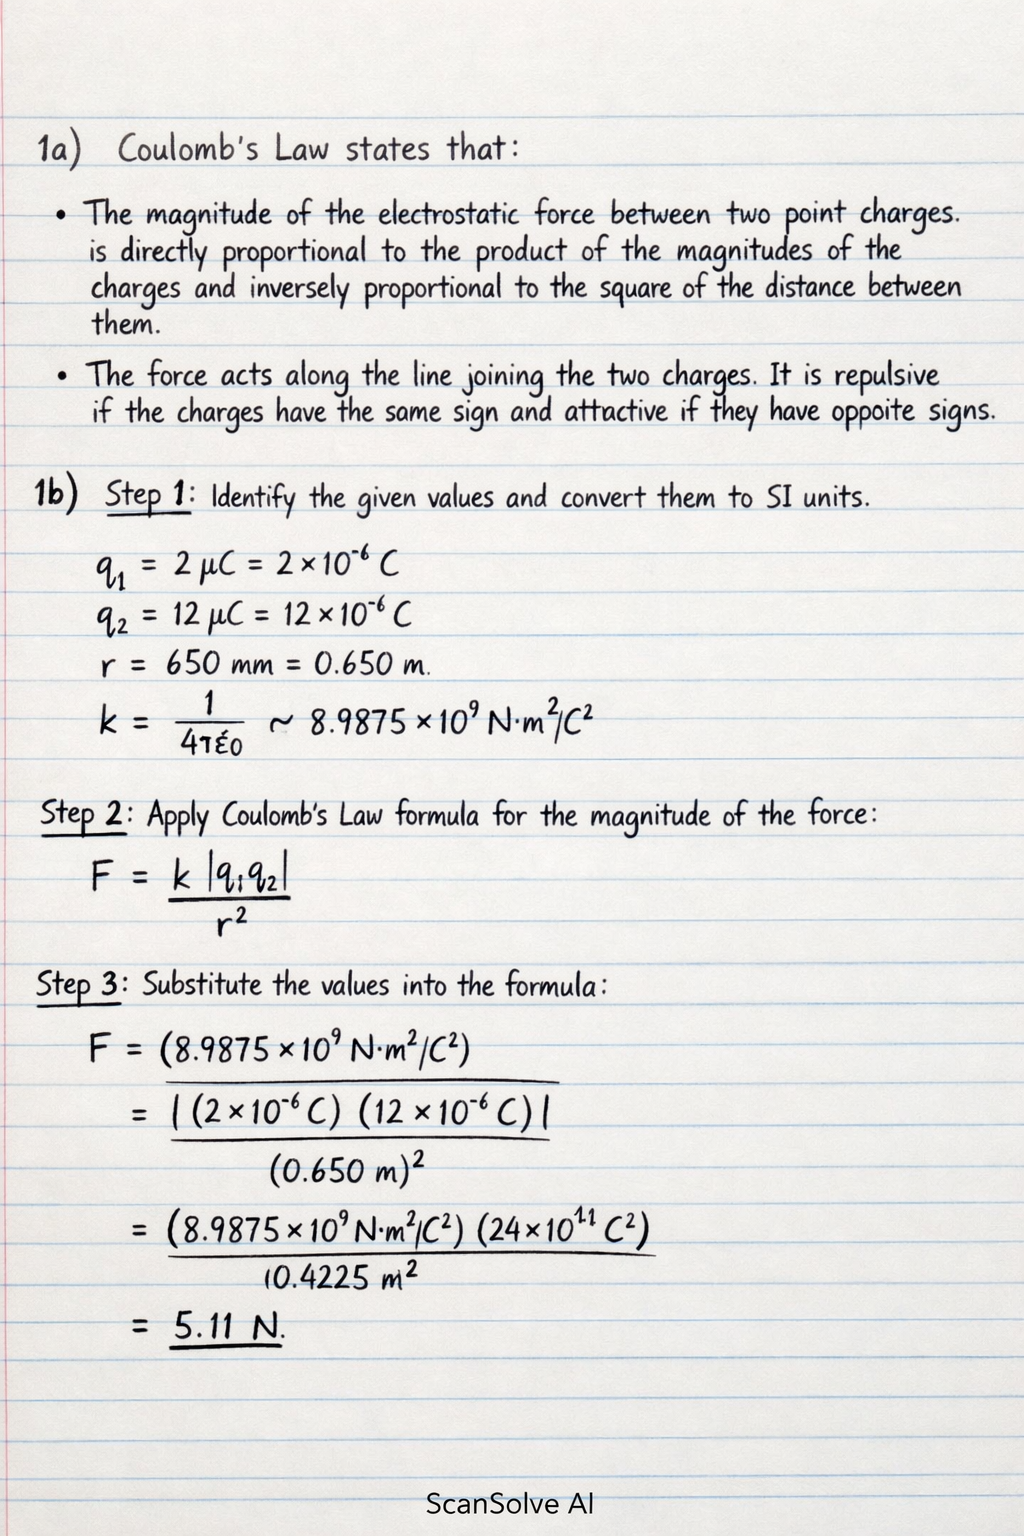 1a) Coulomb's Law states that:
• The magnitude of the electrostatic force between two point charges.
is directly proportional to the product of the magnitudes of the
charges and inversely proportional to the square of the distance between
them.
• The force acts along the line joining the two charges. It is repulsive
if the charges have the same sign and attractive if they have oppoite signs.
1b) Step 1: Identify the given values and convert them to SI units.
q₁ = 2 μC = 2 × 10⁻⁶ C
q₂ = 12 μC = 12 × 10⁻⁶ C
r = 650 mm = 0.650 m.
k = 1 / 4πε0 ~ 8.9875 × 10⁹ N·m²/C²
Step 2: Apply Coulomb's Law formula for the magnitude of the force:
F = k |q₁q₂|
r²
Step 3: Substitute the values into the formula:
F = (8.9875 × 10⁹ N·m²/C²)
= |(2 × 10⁻⁶ C) (12 × 10⁻⁶ C)|
(0.650 m)²
= (8.9875 × 10⁹ N·m²/C²) (24 × 10¹¹ C²)
10.4225 m²
= 5.11 N.
ScanSolve AI